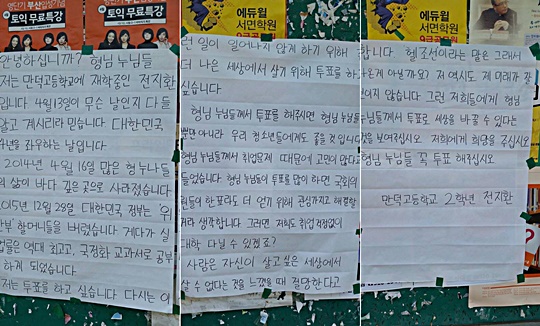 영단기 부산입성기념
토익 무료특강
토익 무료특강
에듀윌
서면학원
9급공
에듀윌
서면학원
9급공
안녕하십니까? 형님 누님들
저는 만덕고등학교에 재학중인 전지환
입니다. 4월13일이 무슨 날인지 다들
알고 계시리라 믿습니다. 대한민국
4년을 좌우하는 날입니다.
2014년 4월 16일 많은 형누나들
의 삶이 바다 깊은 곳으로 사라졌습니다
2015년 12월 28일 대한민국 정부는 '위
안부' 할머니들을 버렸습니다. 게다가 실
업률은 역대 최고고, 국정화 교과서로 공부
하게 되었습니다.
저는 투표를 하고 싶습니다. 다시는 이
런 일이 일어나지 않게 하기 위해
더 나은 세상에서 살기 위해 투표를 하고
싶습니다.
형님 누님들께서 투표를 해주시면 형님
뿐만 아니라 우리 청소년들에게도 좋을 것입니다
형님 누님들께서 취업문제 때문에 고민이 많다고
들었습니다. 형님 누님들이 투표를 많이 하면 국회의
원들이 한표라도 더 얻기 위해 관심가지고 해결할
거라 생각합니다. 그러면 저희도 취업걱정없이
대학 다닐 수 있겠죠?
사람은 자신이 살고싶은 세상에서
살 수 없다는 것을 느꼈을 때 절망한다고
합니다. 헬조선이라는 말은 그래서
나온게 아닐까요? 저 역시도 제 미래가 잘
보이지 않습니다. 그런 저희들에게 형님
누님들께서 투표로 세상을 바꿀 수 있다는
것을 보여주십시오. 저희에게 희망을 주십시오
형님 누님들 꼭 투표 해주십시오
만덕고등학교 2학년 전지환